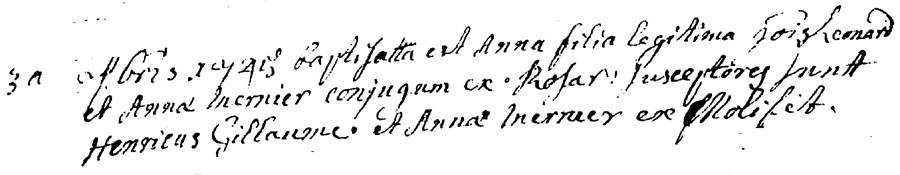 3a 9bris 1745 baptisatta est Anna filia legitima Jois Leonard
et Annæ Mernier conjugum ex Rosar: susceptores sunt
Henricus Gillaume et Anna Mernier ex